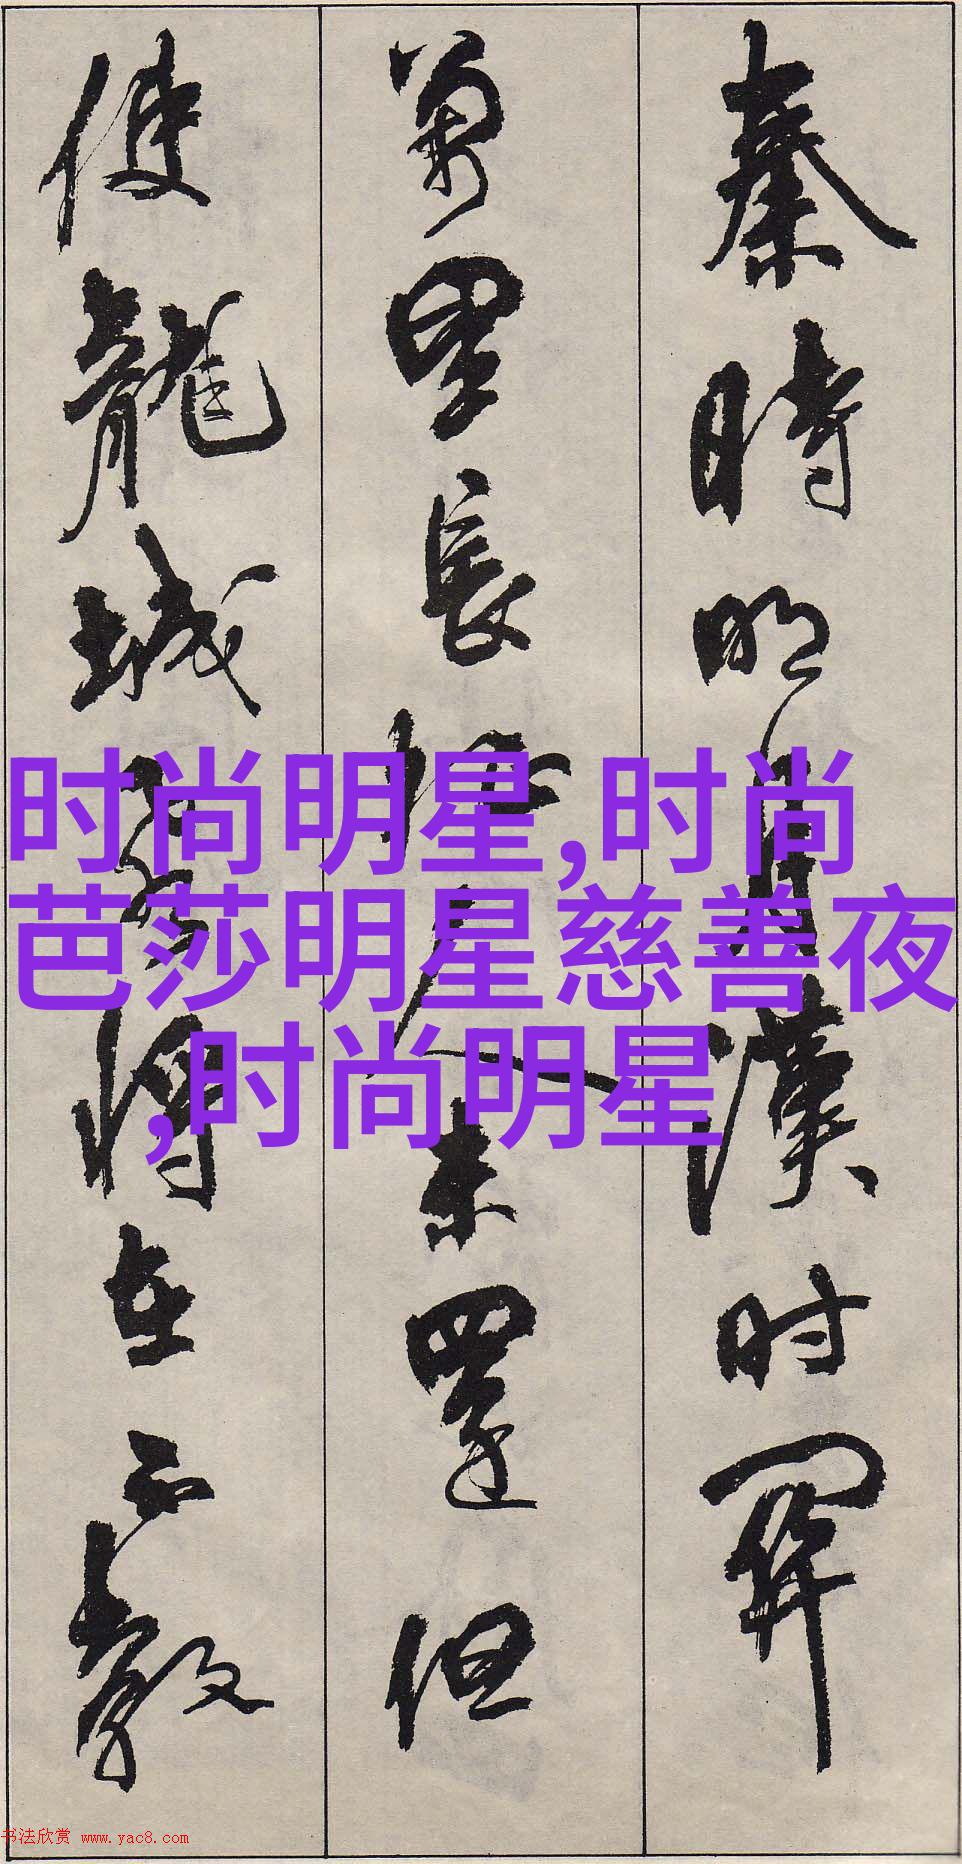 秦時明月漢时関
萬里長征人未還但
使龍城飛将在不教
时尚明星,时尚
芭莎明星慈善夜
,时尚明星
书法欣赏 www.yac8.com